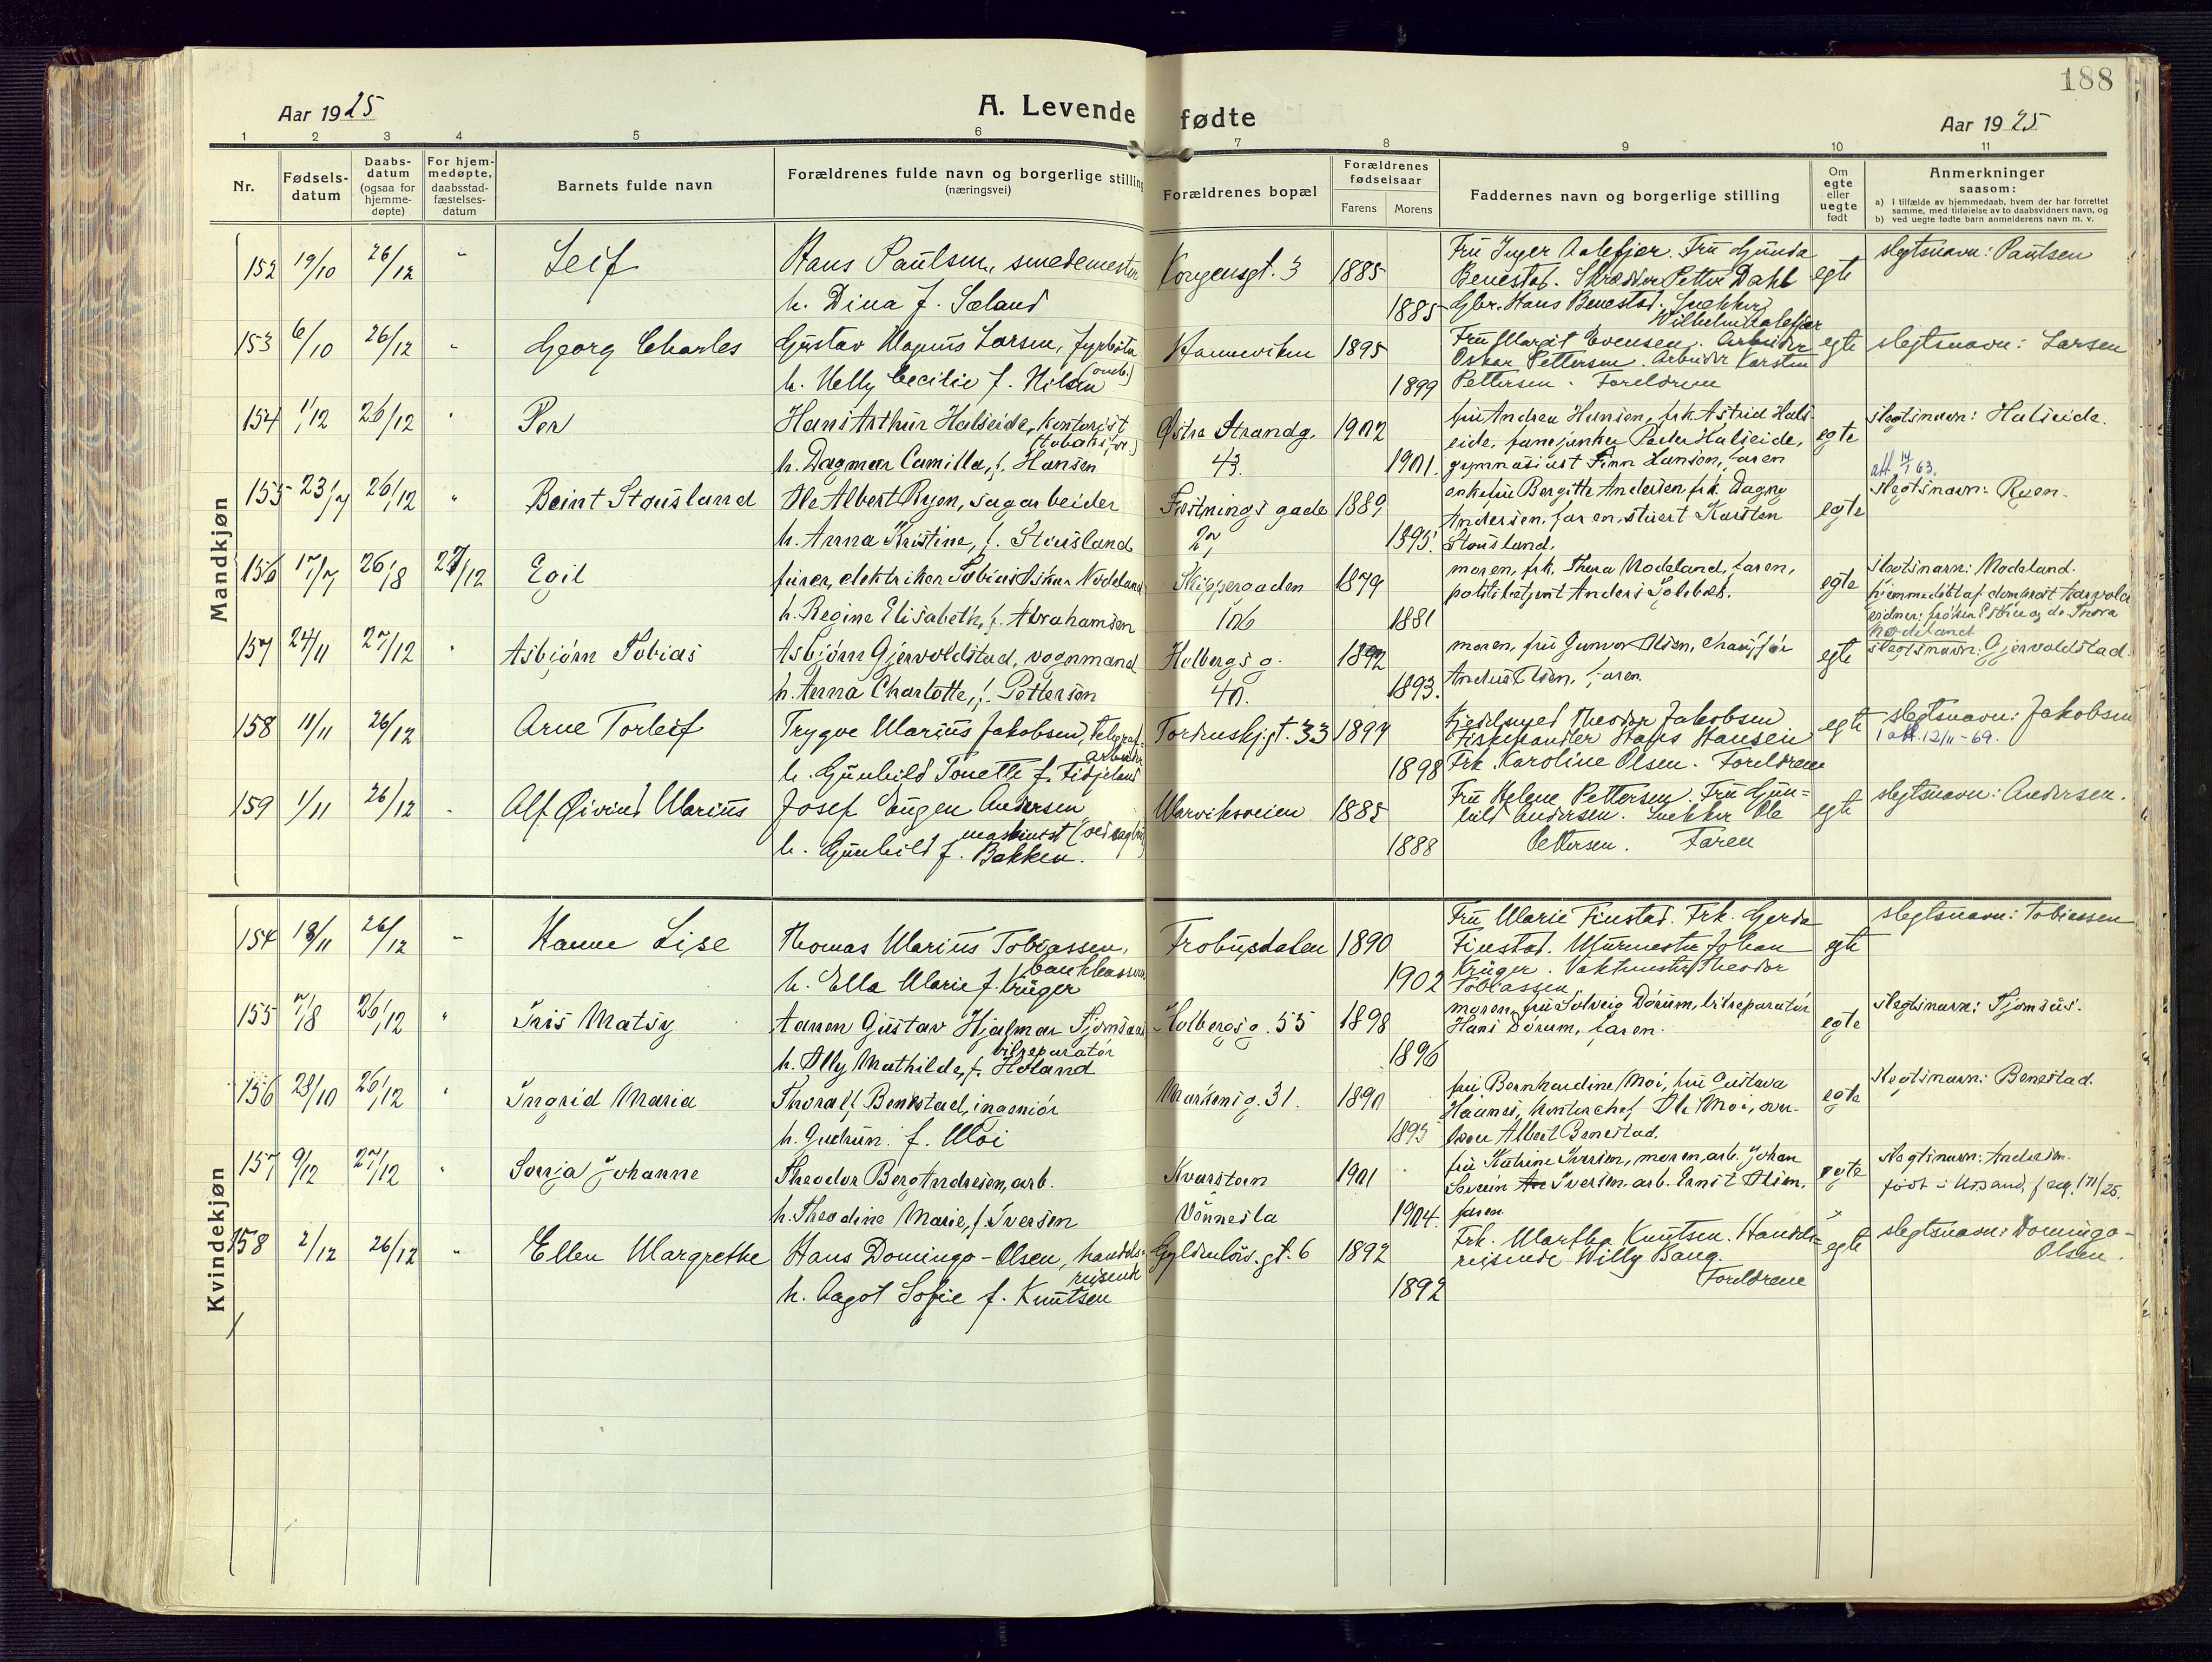 188
Aar 1925
A. Levende fødte
Aar 1925
1 2 3 4 5 6 7 8 9 10 11
Nr.
Fødsels-
datum
Daabs-
datum
(ogsaa for
hjemme-
døpte)
For hjem-
medøpte,
daabsstad-
fæstelses-
datum
Barnets fulde navn
Forældrenes fulde navn og borgerlige stilling
(næringsvei)
Forældrenes bopæl
Forældrenes
fødselsaar
Farens Morens
Faddernes navn og borgerlige stilling
Om
egte
eller
uegte
født
Anmerkninger
saasom:
a) i tilfælde av hjemmedaab, hvem der har forrettet
samme, med tilføielse av to daabsvidners navn, og
b) ved uegte fødte barn anmelderens navn m. v.
Mandkjøn
152 19/10 26/12 " Leif Hans Paulsen, smedemester Kongensgt. 3 1885 Fru Inger Aalefjer. Fru Gunda egte slegtsnavn: Paulsen
Benestad. Skrædder Petter Dahl
h. Dina f. Sæland 1885 Gbr. Hans Benestad. Snekker
Wilhelm Aalefjer
153 6/10 26/12 " Georg Charles Gustav Magnus Larsen, fyrbøter Hanneviken 1895 Fru Margit Evensen. Arbeider egte slegtsnavn: Larsen
Oskar Pettersen. Arbeider Karsten
h. Nelly Cecilie f. Nilsen 1899 Pettersen. Foreldrene
154 1/12 26/12 " Per Hans Arthur Halseide, kontorist Østre Strandg. 1902 fru Andrea Hansen, frk. Astrid Hals- egte slegtsnavn: Halseide.
eide, fanejunker Peder Halseide,
h. Dagmar Camilla, f. Hansen 43. 1901. gymnasiast Finn Hansen, faren
att 14/1 63.
155 23/7 26/12 " Beint Stousland Ole Albert Ryen, sagarbeider Festningsgade 1889 enkefru Bergitte Andersen frk. Dagny egte slegtsnavn: Ryen.
Andersen, faren, stuert Karsten
h. Anna Kristine, f. Stousland 1895. Stousland.
156 17/7 26/8 27/12 Egil furer, elektriker Tobias Oskar Nodeland Skippergaden 1879 moren, frk. Thora Nodeland, faren, egte slegtsnavn: Nodeland.
politibetjent Anders
h. Regine Elisabeth, f. Abrahamsen 106 1881 hjemmedøbt af domprost Aarvold
Thora
Nodeland
157 24/11 27/12 " Asbjørn Tobias Asbjørn Gjervoldstad, vognmand Holbergsg. 1892 moren, fru Gunvor Olsen, chauffør egte slegtsnavn: Gjervoldstad.
h. Anna Charlotte, f. Pettersen 40. 1893. Olsen, faren
158 11/11 26/12 Arne Torleif Trygve Marius Jakobsen, telegraf- Tordenskj.gt. 33 1897 Kjedelsmed Theodor Jakobsen egte slegtsnavn: Jakobsen
arbeider Fiskehandler Hans Hansen 1 att. 12/11-69.
h. Gunhild Tonette f. Fidjeland 1898 Frk. Karoline Olsen. Foreldrene
159 1/11 26/12 " Alf Øivind Marius Josef Eugen Andersen Marviksveien 1885 Fru Helene Pettersen. Fru Gun- egte slegtsnavn: Andersen.
maskinist hild Andersen. Snekker Ole
h. Gunhild f. Bakken. 1888 Pettersen. Faren
Kvindekjøn
154 18/11 26/12 " Hanne Lise Thomas Marius Tobiassen, Frobusdalen 1890 Fru Marie Finstad. Frk. Gerda egte slegtsnavn: Tobiassen
bankkasserer Finstad. Murmester Johan
h. Ella Marie f. Krüger 1902 Krüger. Vaktmester Theodor
Tobiassen
155 7/8 26/12 " Iris Matsy Aanen Gustav Hjalmar Tjomsaas Holbergsg. 55 1898 moren, fru Solveig Dørum, bilreparatør egte slegtsnavn: Tjomsås.
bilreparatør Hans Dørum, faren.
h. Olly Mathilde, f. Høland 1896
156 28/10 26/12 " Ingrid Maria Thoralf Benestad, ingeniør Markensg. 31. 1890 fru Bernhardine Moi, fru Gustava egte slegtsnavn: Benestad.
kontorchef Ole Moi,
h. Gudrun f. Moi 1895 Albert Benestad.
157 9/12 27/12 " Sonja Johanne Theodor Berg Andresen, arb. Kvarstein 1901 fru Katrine Iversen, moren, arb. Johan egte slegtsnavn: Andresen.
Severin Iversen. arb. Ernst Olsen,
h. Theodine Marie, f. Iversen Vennesla 1904. faren
158 2/12 26/12 " Ellen Margrethe Hans Domingo-Olsen, handels- Gyldenløvs.gt. 6 1892 Frk. Martha Knutsen. Handels- egte slegtsnavn: Domingo-
reisende reisende Willy Bang Olsen.
h. Aagot Sofie f. Knutsen 1892 Foreldrene